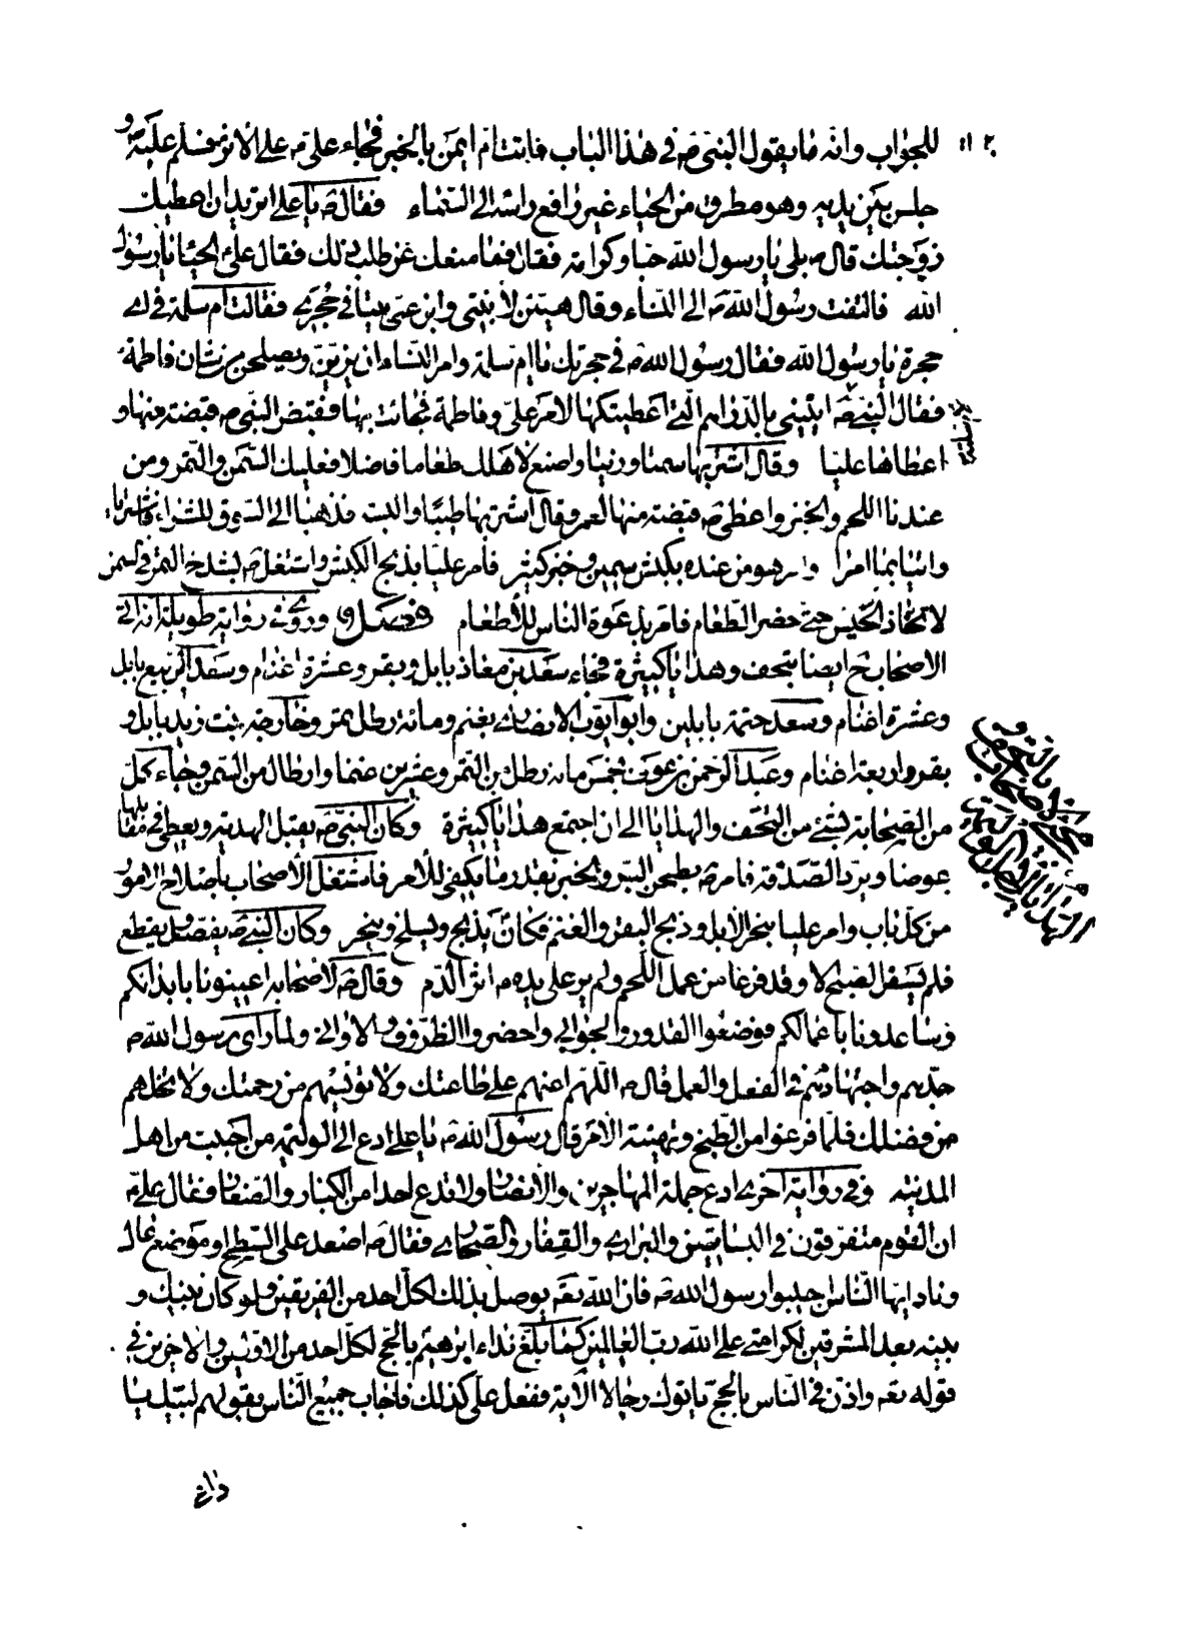 ١١٢
للجواب وانه ما يقول النبي ص في هذا الباب فاتت ام ايمن بالخبر فجاء علي ع على الاثر فسلم عليه و
جلس بين يديه وهو مطرق من الحياء غير رافع راسه الى السماء فقال ص يا علي اتريد ان اعطيك
زوجتك قال ع بلى يا رسول الله حبا وكرامة فقال فما منعك عن طلب ذلك فقال علي ع الحياء يا رسول
الله فالتفت رسول الله ص الى النساء وقال هيئن لابنتي وابن عمي بيتا في حجرى فقالت ام سلمة في اي
حجرة يا رسول الله فقال رسول الله ص في حجرتك يا ام سلمة وامر النساء ان يزين ويصلحن من شان فاطمة ع
فقال النبي ص ايتيني بالدراهم التي اعطيتكها لامر علي وفاطمة فجائت بها فقبض النبي ص قبضة منها و
اعطاها عليا وقال اشتر بها سمنا وزيتا واصنع لاهلك طعاما فاضلا فعليك السمن والتمر ومن
عندنا اللحم والخبز واعطى ص قبضة منها لعمر وقال اشتر بها طيبا والبت فذهبا الى السوق للشراء فاشتريا
واتيا بما امرا وامر هو من عنده بكبش سمين وخبز كثير فامر عليا بذبح الكبش واشتغل ص لشدخ التمر في السمن
لاتخاذ الحيس حتى حضر الطعام فامر بدعوة الناس للاطعام فصل وروي في رواية طويلة انه اتى
الاصحاب ح ايضا بتحف وهدايا كثيرة فجاء سعد بن معاذ بابل وبقر وعشرة اغنام وسعد الربيع بابل
وعشرة اغنام وسعد حتمة بابلين وابو ايوب الانصارى بغنم ومائة رطل تمر وخارجة بنت زيد بابل و
بقر واربعة اغنام وعبد الرحمن بن عوف خمس مائة رطل من التمر وعشرين غنما وارطال من السمن وجاء كل
من الصحابة بشئ من التحف والهدايا الى ان اجتمع هدايا كثيرة وكان النبي ص يقبل الهدية ويعطى في مقابلها
عوضا ويرد الصدقة فامر ص بطحن البر والخبز بقدر ما يكفى للامر فاشتغل الاصحاب باصلاح الامور
من كل باب وامر عليا بنحر الابل وذبح البقر والغنم فكان يذبح ويسلخ وينحر وكان النبي ص يفصل يقطع
فلم يسفر الصبح الا وقد فرغا من عمل اللحم ولم ير على يده ع اثر الدم وقال ص لاصحابه اعينونا بابدانكم
وساعدونا باعمالكم فوضعوا القدور والجوابي واحضروا الظروف والاواني ولما راى رسول الله ص
جدهم واجتهادهم في الفعل والعمل قال ص اللهم اعنهم على طاعتك ولا تؤيسهم من رحمتك ولا تخلهم
من فضلك فلما فرغوا من الطبخ وتهيئة الامر قال رسول الله ص يا علي ادع الى الوليمة من احببت من اهل
المدينة وفي رواية اخرى ادع جملة المهاجرين والانصار ولا تدع احدا من الكبار والصغار فقال علي ع
ان القوم متفرقون في البساتين والبراري والقفار والصحارى فقال ص اصعد على السطح او موضع عال
وناد ايها الناس اجيبوا رسول الله ص فان الله تعه يوصل بذلك لكل احد من الفريقين ولو كان بينك و
بينه بعد المشرقين لكرامتي على الله رب العالمين كما بلغ نداء ابرهيم بالحج لكل احد من الاولين والاخرين في
قوله تعه واذن في الناس بالحج ياتوك رجالا الاية ففعل علي كذلك فاجاب جميع الناس بقولهم لبيك يا
داع